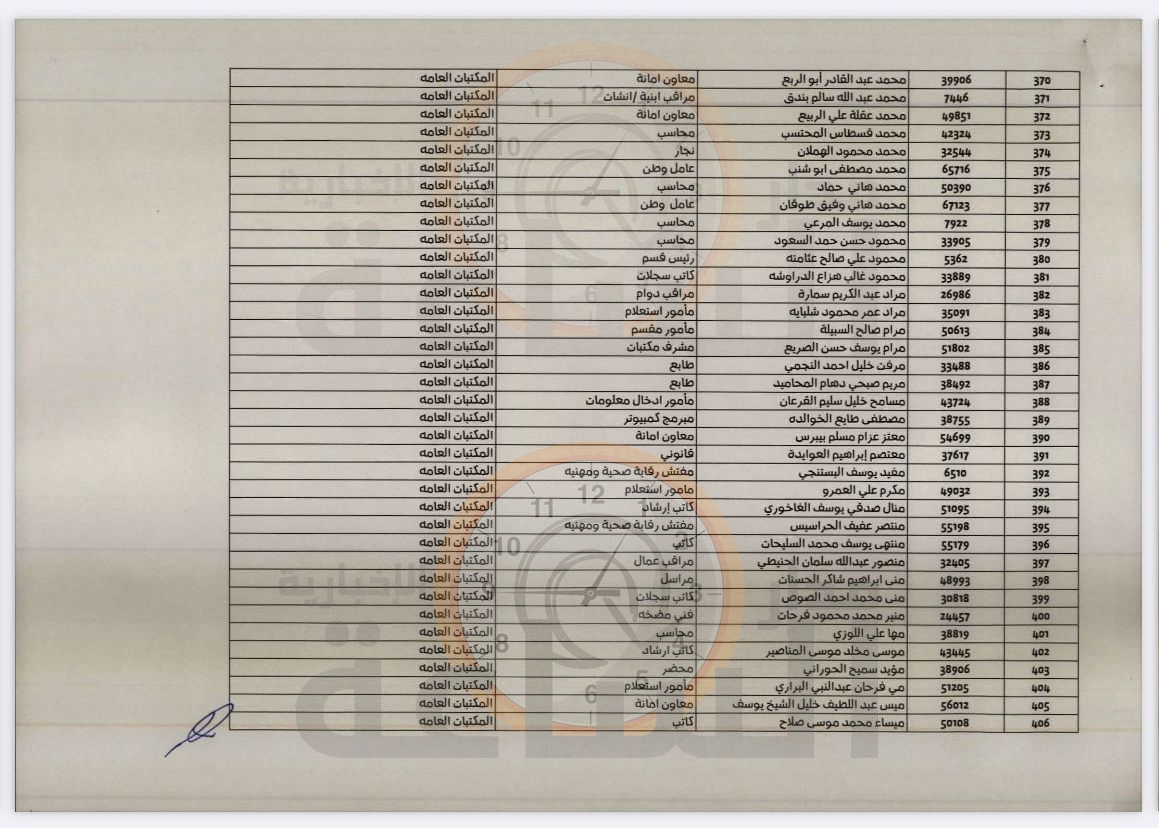 370 39906 محمد عبد القادر أبو الربع معاون امانة المكتبات العامه
371 7446 محمد عبد الله سالم بندق مراقب ابنية /انشات المكتبات العامه
372 49851 محمد عقلة علي الربيع معاون امانة المكتبات العامه
373 42324 محمد قسطاس المحتسب محاسب المكتبات العامه
374 32544 محمد محمود الهملان نجار المكتبات العامه
375 65716 محمد مصطفى ابو شنب عامل وطن المكتبات العامه
376 50390 محمد هاني حماد محاسب المكتبات العامه
377 67123 محمد هاني وفيق طوقان عامل وطن المكتبات العامه
378 7922 محمد يوسف المرعي محاسب المكتبات العامه
379 33905 محمود حسن حمد السعود محاسب المكتبات العامه
380 5362 محمود علي صالح عثامنه رئيس قسم المكتبات العامه
381 33889 محمود غالب هزاع الدراوشه كاتب سجلات المكتبات العامه
382 26986 مراد عبد الكريم سمارة مراقب دوام المكتبات العامه
383 35091 مراد عمر محمود شلبايه مأمور استعلام المكتبات العامه
384 50613 مرام صالح السبيلة مأمور مقسم المكتبات العامه
385 51802 مرام يوسف حسن الصريع مشرف مكتبات المكتبات العامه
386 33488 مرفت خليل احمد النجمي طابع المكتبات العامه
387 38492 مريم صبحي دهام المحاميد طابع المكتبات العامه
388 43724 مسامح خليل سليم القرعان مأمور ادخال معلومات المكتبات العامه
389 38755 مصطفى طايع الخوالده مبرمج كمبيوتر المكتبات العامه
390 54699 معتز عزام مسلم بيبرس معاون امانة المكتبات العامه
391 37617 معتصم إبراهيم العوايدة قانوني المكتبات العامه
392 6510 مفيد يوسف البستنجي مفتش رقابة صحية ومهنيه المكتبات العامه
393 49032 مكرم علي العمرو مامور استعلام المكتبات العامه
394 51095 منال صدقي يوسف الفاخوري كاتب إرشاد المكتبات العامه
395 55198 منتصر عفيف الحراسيس مفتش رقابة صحية ومهنيه المكتبات العامه
396 55179 منتهى يوسف محمد السليحات كاتب المكتبات العامه
397 32405 منصور عبدالله سلمان الحنيطي مراقب عمال المكتبات العامه
398 48993 منى ابراهيم شاكر الحسنات مراسل المكتبات العامه
399 30818 منى محمد احمد الصوص كاتب سجلات المكتبات العامه
400 24457 منير محمد محمود فرحات فني مضخه المكتبات العامه
401 38819 مها علي اللوزي محاسب المكتبات العامه
402 43445 موسى مخلد موسى المناصير كاتب ارشاد المكتبات العامه
403 38906 مؤيد سميح الحوراني محضر المكتبات العامه
404 51205 مي فرحان عبدالنبي البراري مأمور استعلام المكتبات العامه
405 56012 ميس عبد اللطيف خليل الشيخ يوسف معاون امانة المكتبات العامه
406 50108 ميساء محمد موسى صلاح كاتب المكتبات العامه